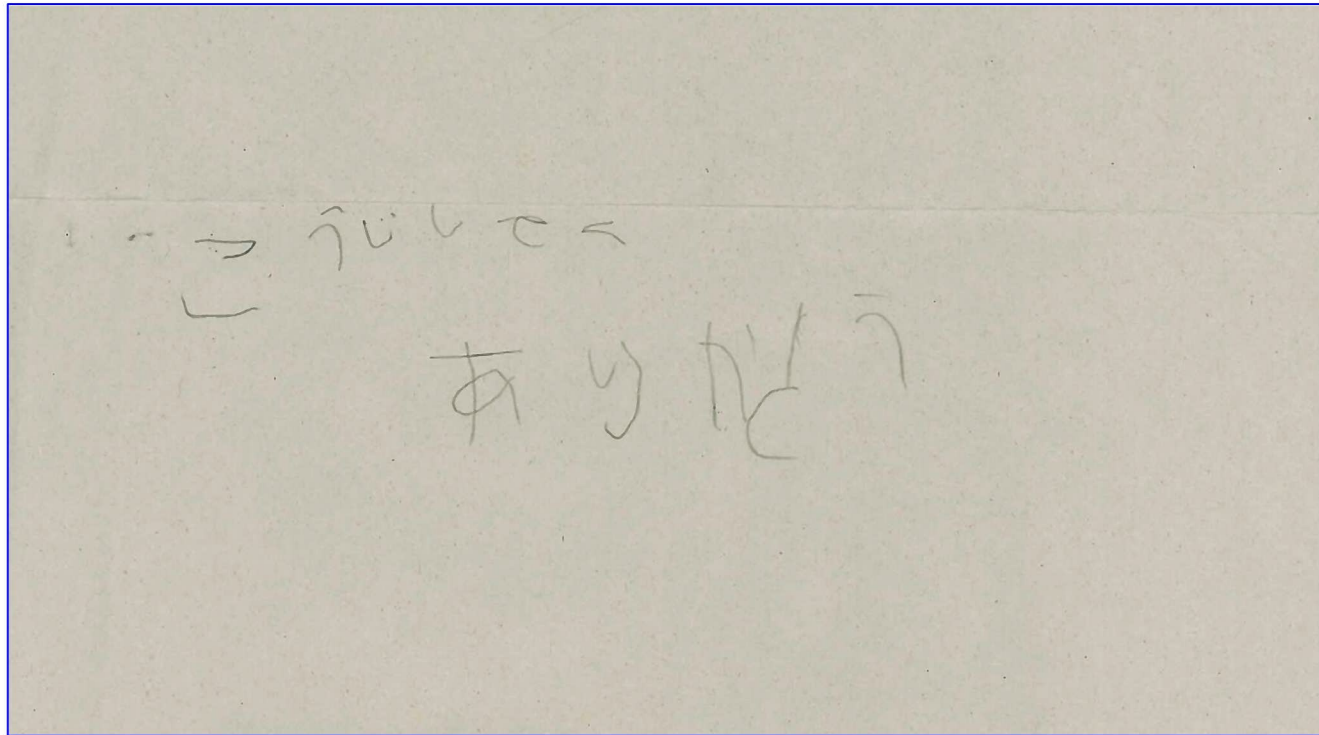 こうじしてく
ありがとう